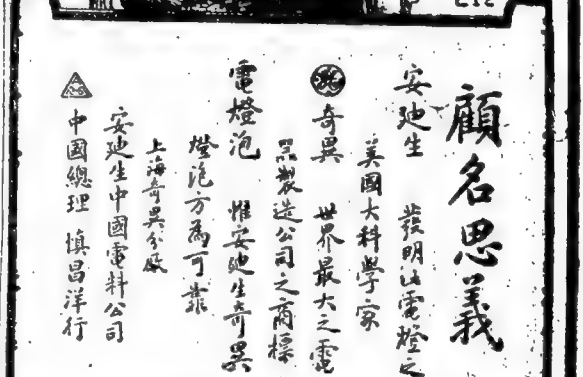 顧名思義
安廸生 發明此電燈之
美國大科學家
奇異 世界最大之電
器製造公司之商標
電燈泡 惟安廸生奇異
燈泡方為可靠
上海奇異分廠
安廸生中國電料公司
中國總理 慎昌洋行